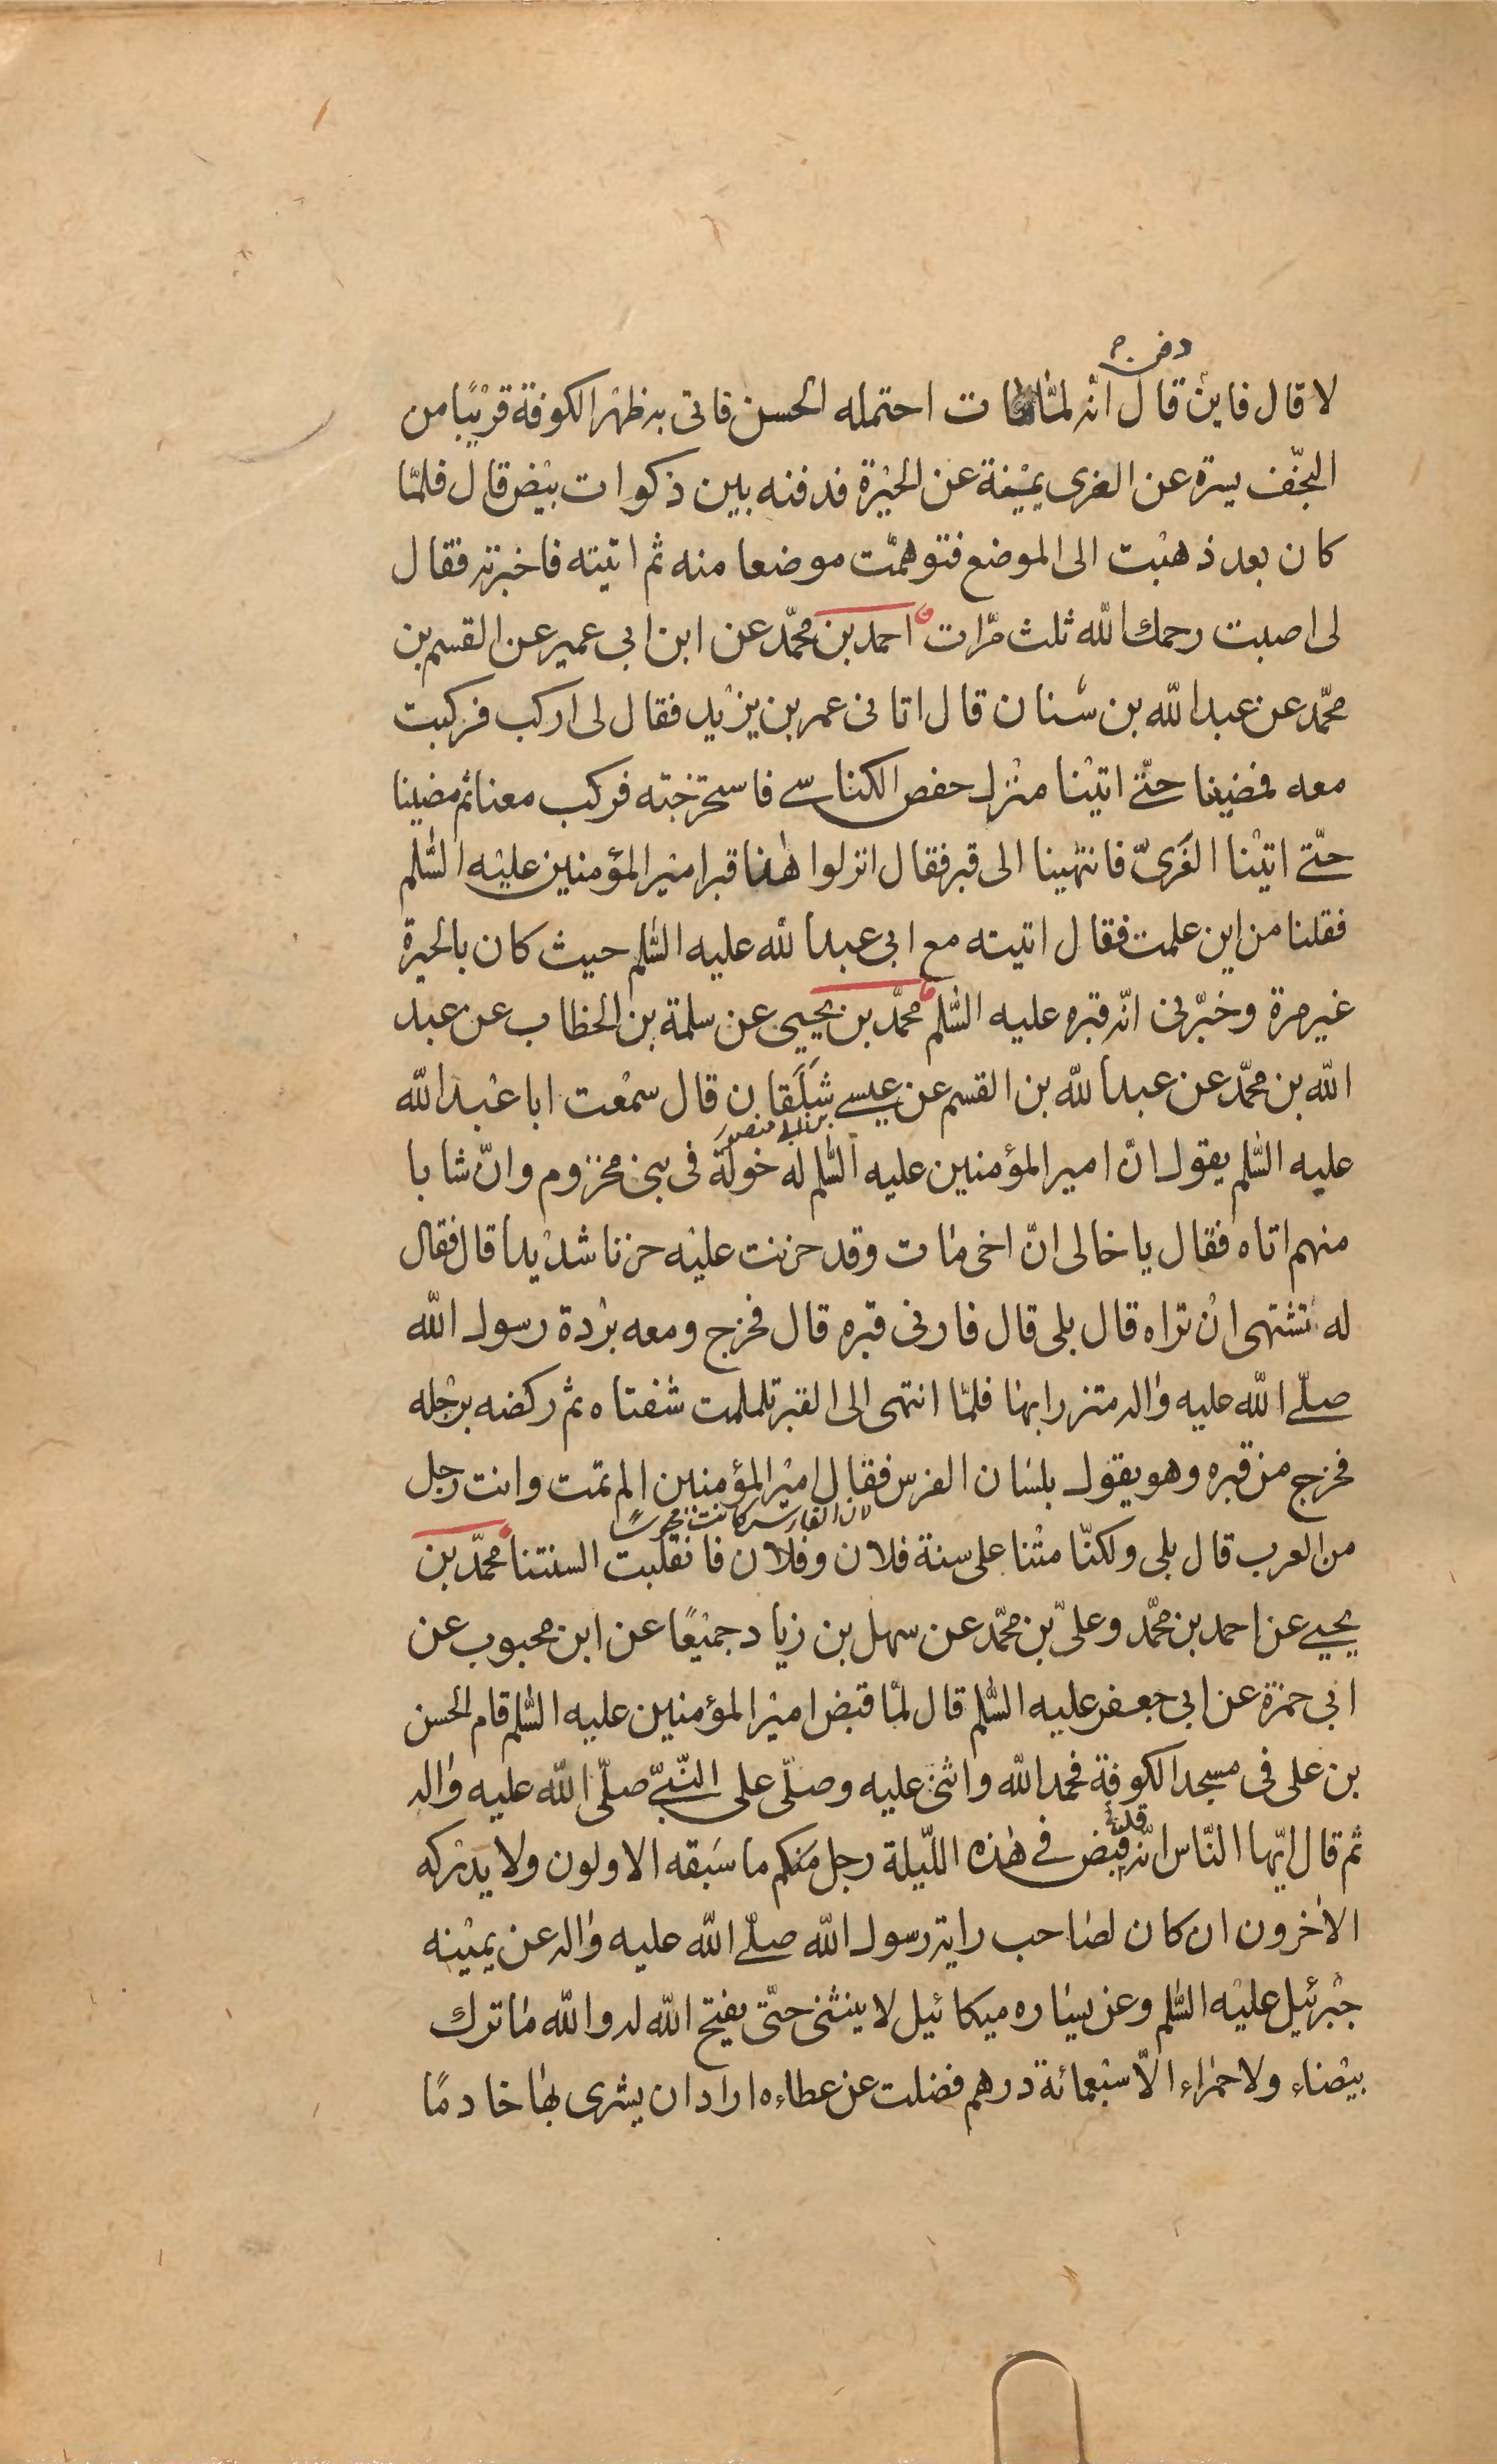 دفن
لا قال فاين قال انه لما مات احتمله الحسن فاتى به ظهر الكوفة قريبا من
النجف يسرة عن الغرى يمينة عن الحيرة فدفنه بين ذكوات بيض قال فلما
كان بعد ذهبت الى الموضع فتوهمت موضعا منه ثم اتيته فاخبرته فقال
لى اصبت رحمك الله ثلث مرات احمد بن محمّد عن ابن ابى عمير عن القسم بن
محمّد عن عبد الله بن سنان قال اتانى عمر بن يزيد فقال لى اركب فركبت
معه فمضينا حتّى اتينا منزل حفص الكناسى فاستخرجته فركب معنا ثم مضينا
حتّى اتينا الغَرىّ فانتهينا الى قبر فقال انزلوا هذا قبر امير المؤمنين عليه السّلم
فقلنا من اين علمت فقال اتيته مع ابى عبد الله عليه السّلم حيث كان بالحيرة
غير مرة وخبّرنى انّه قبره عليه السّلم محمّد بن يحيى عن سلمة بن الخطاب عن عبد
الله بن محمّد عن عبد الله بن القسم عن عيسى شَلَقان قال سمعت ابا عبد الله
بن ابى منصور
عليه السّلم يقول انّ امير المؤمنين عليه السّلم له خولة فى بنى مخزوم وانّ شابا
منهم اتاه فقال يا خالى انّ اخى مات وقد حزنت عليه حزنا شديدا قال فقال
له تشتهى ان تراه قال بلى قال فارنى قبره قال فخرج ومعه بردة رسول الله
صلّى الله عليه واله متزرا بها فلمّا انتهى الى القبر تلملمت شفتاه ثم ركضه برجله
فخرج من قبره وهو يقول بلسان الفرس فقال امير المؤمنين الم تمت وانت رجل
من العرب قال بلى ولكنّا متنا على سنة فلان وفلان فانقلبت السنتنا محمّد بن
يحيى عن احمد بن محمّد وعلىّ بن محمّد عن سهل بن زياد جميعًا عن ابن محبوب عن
ابى حمزة عن ابى جعفر عليه السّلم قال لمّا قبض امير المؤمنين عليه السّلم قام الحسن
بن على فى مسجد الكوفة فحمد الله واثنى عليه وصلّى على النّبىّ صلّى الله عليه واله
قد
ثم قال ايّها النّاس انّه قبض فى هذه اللّيلة رجل منكم ما سَبقه الاولون ولا يدركه
الاخرون ان كان لصاحب راية رسول الله صلّى الله عليه واله عن يمينه
جبرئيل عليه السّلم وعن يساره ميكائيل لا ينثنى حتّى يفتح الله له والله ما ترك
بيضاء ولا حمراء الّا سبعمائة درهم فضلت عن عطاءه اراد ان يشرى بها خادمًا